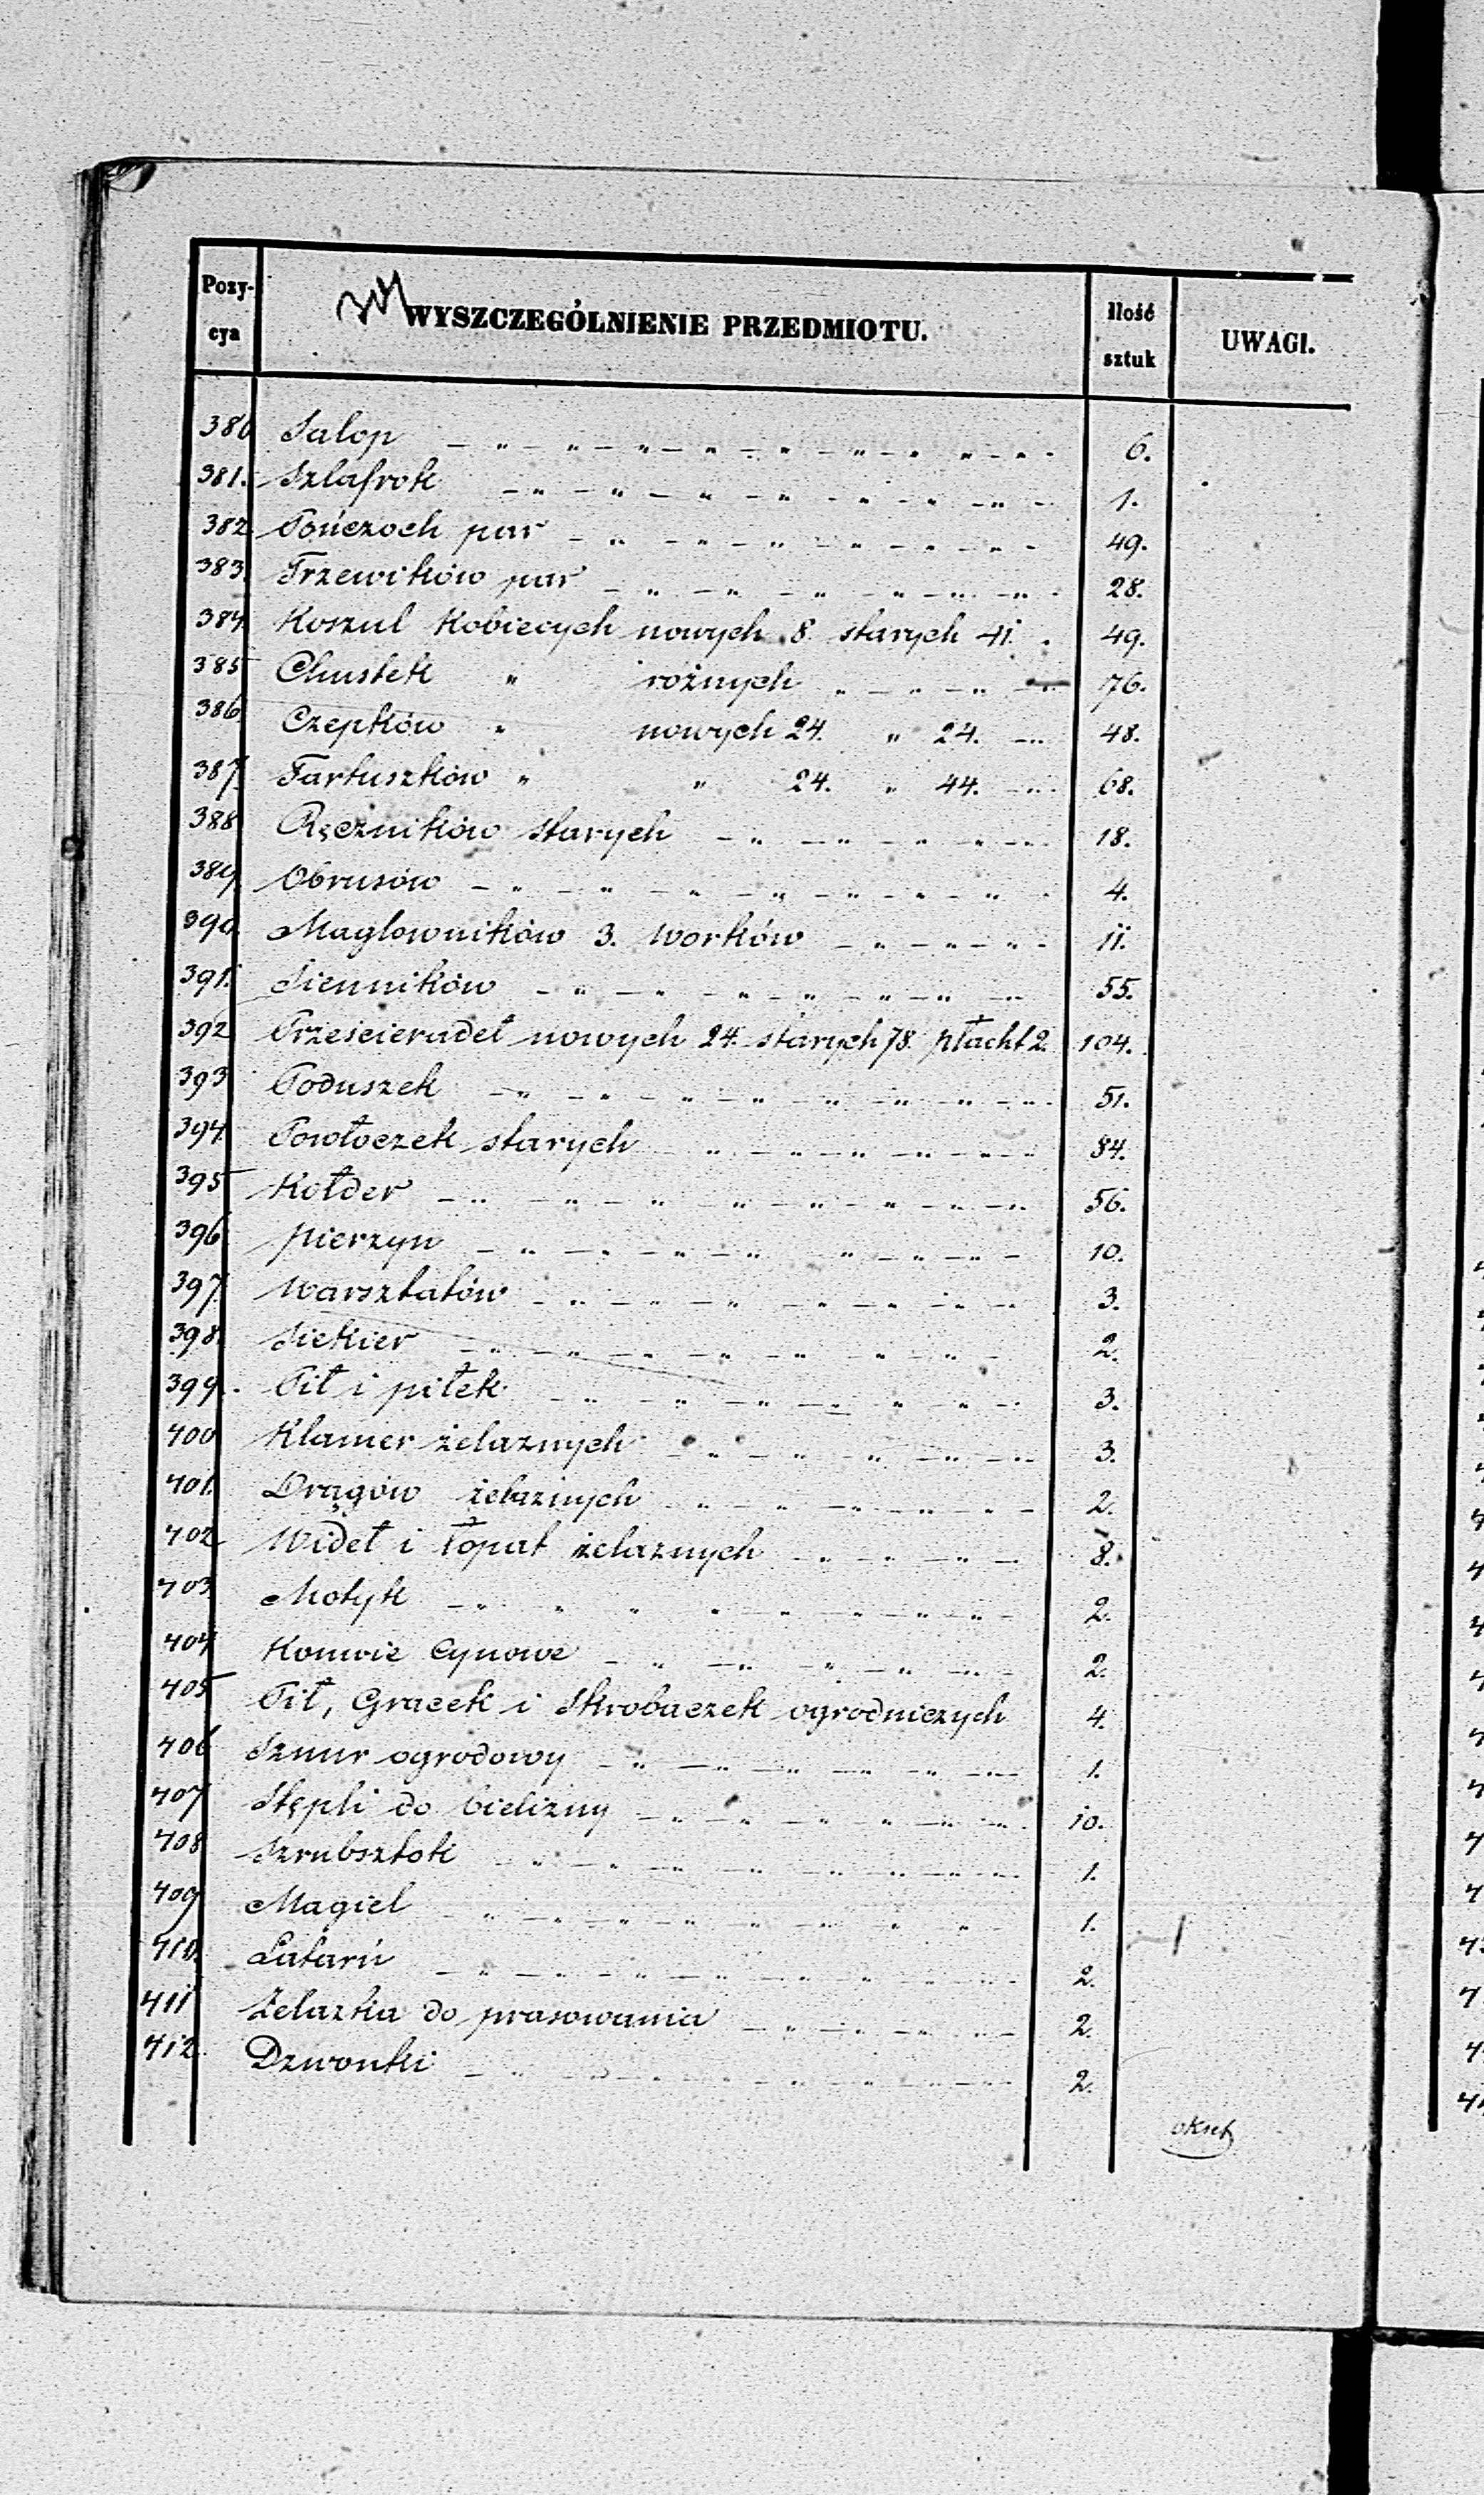 Pozycya WYSZCZEGÓLNIENIE PRZEDMIOTU. Ilość sztuk UWAGI.
380 Salop 6.
381. Szlafrok 1.
382 Pończoch par 49.
383. Trzewików par 28.
384 Koszul Kobiecych nowych 8. starych 41. 49.
385 Chustek " różnych 76.
386. Czepków " nowych 24. " 24. 48.
387. Fartuszków " " 24. " 44. 68.
388 Ręczników starych 18.
389. Obrusów 4.
390. Maglowników 3. Worków 11.
391. Sienników 55.
392 Prześcieradeł nowych 24. starych 78. płacht 2. 104.
393 Poduszek 51.
394. Powłoczek starych 84.
395 Kołder 56.
396 pierzyn 10.
397. Warsztatów 3.
398. Siekier 2.
399. Pił i piłek 3.
400 Klamer żelaznych 3.
401. Drągów żelaznych 2.
402 Wideł i łopat żelaznych 8.
403. Motyk 2.
404 Konwie Cynowe 2.
405 Pił, Gracek i Skrobaczek ogrodniczych 4.
406 Sznur ogrodowy 1.
407 Stępli do bielizny 10.
408 Szrubsztok 1.
409 Magiel 1.
410. Latarń 2.
411 Żelazka do prasowania 2.
412. Dzwonki 2.